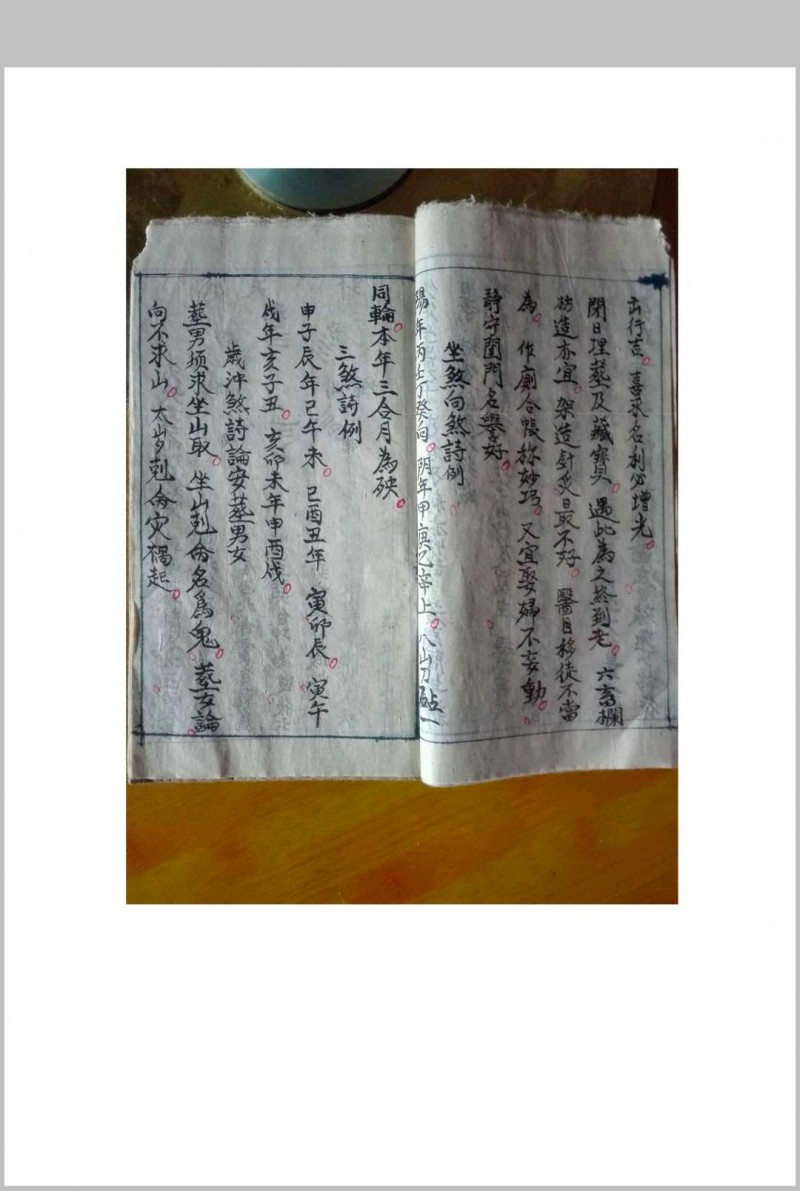 出行吉。喜求名利必增光。
閉日埋塟及藏寶。遇此為之終到老。六畜欄
枋造亦宜。架造針灸最不好。醫目移徒不當
為。作廁合帳称妙巧。又宜娶婦不妄動。
静守閨門名譽好。
坐煞向煞詩例
陽年丙壬丁癸向。阴年甲庚乙辛上。八山方占一
同輪。本年三合月為殃。
三煞詩例
申子辰年巳午未。巳酉丑年寅卯辰。寅午
戌年亥子丑。亥卯未年申酉戌。
歲沖煞詩論安塟男女
塟男須求坐山取。坐山剋命名爲鬼。塟女論
向不求山。太岁剋命灾禍起。